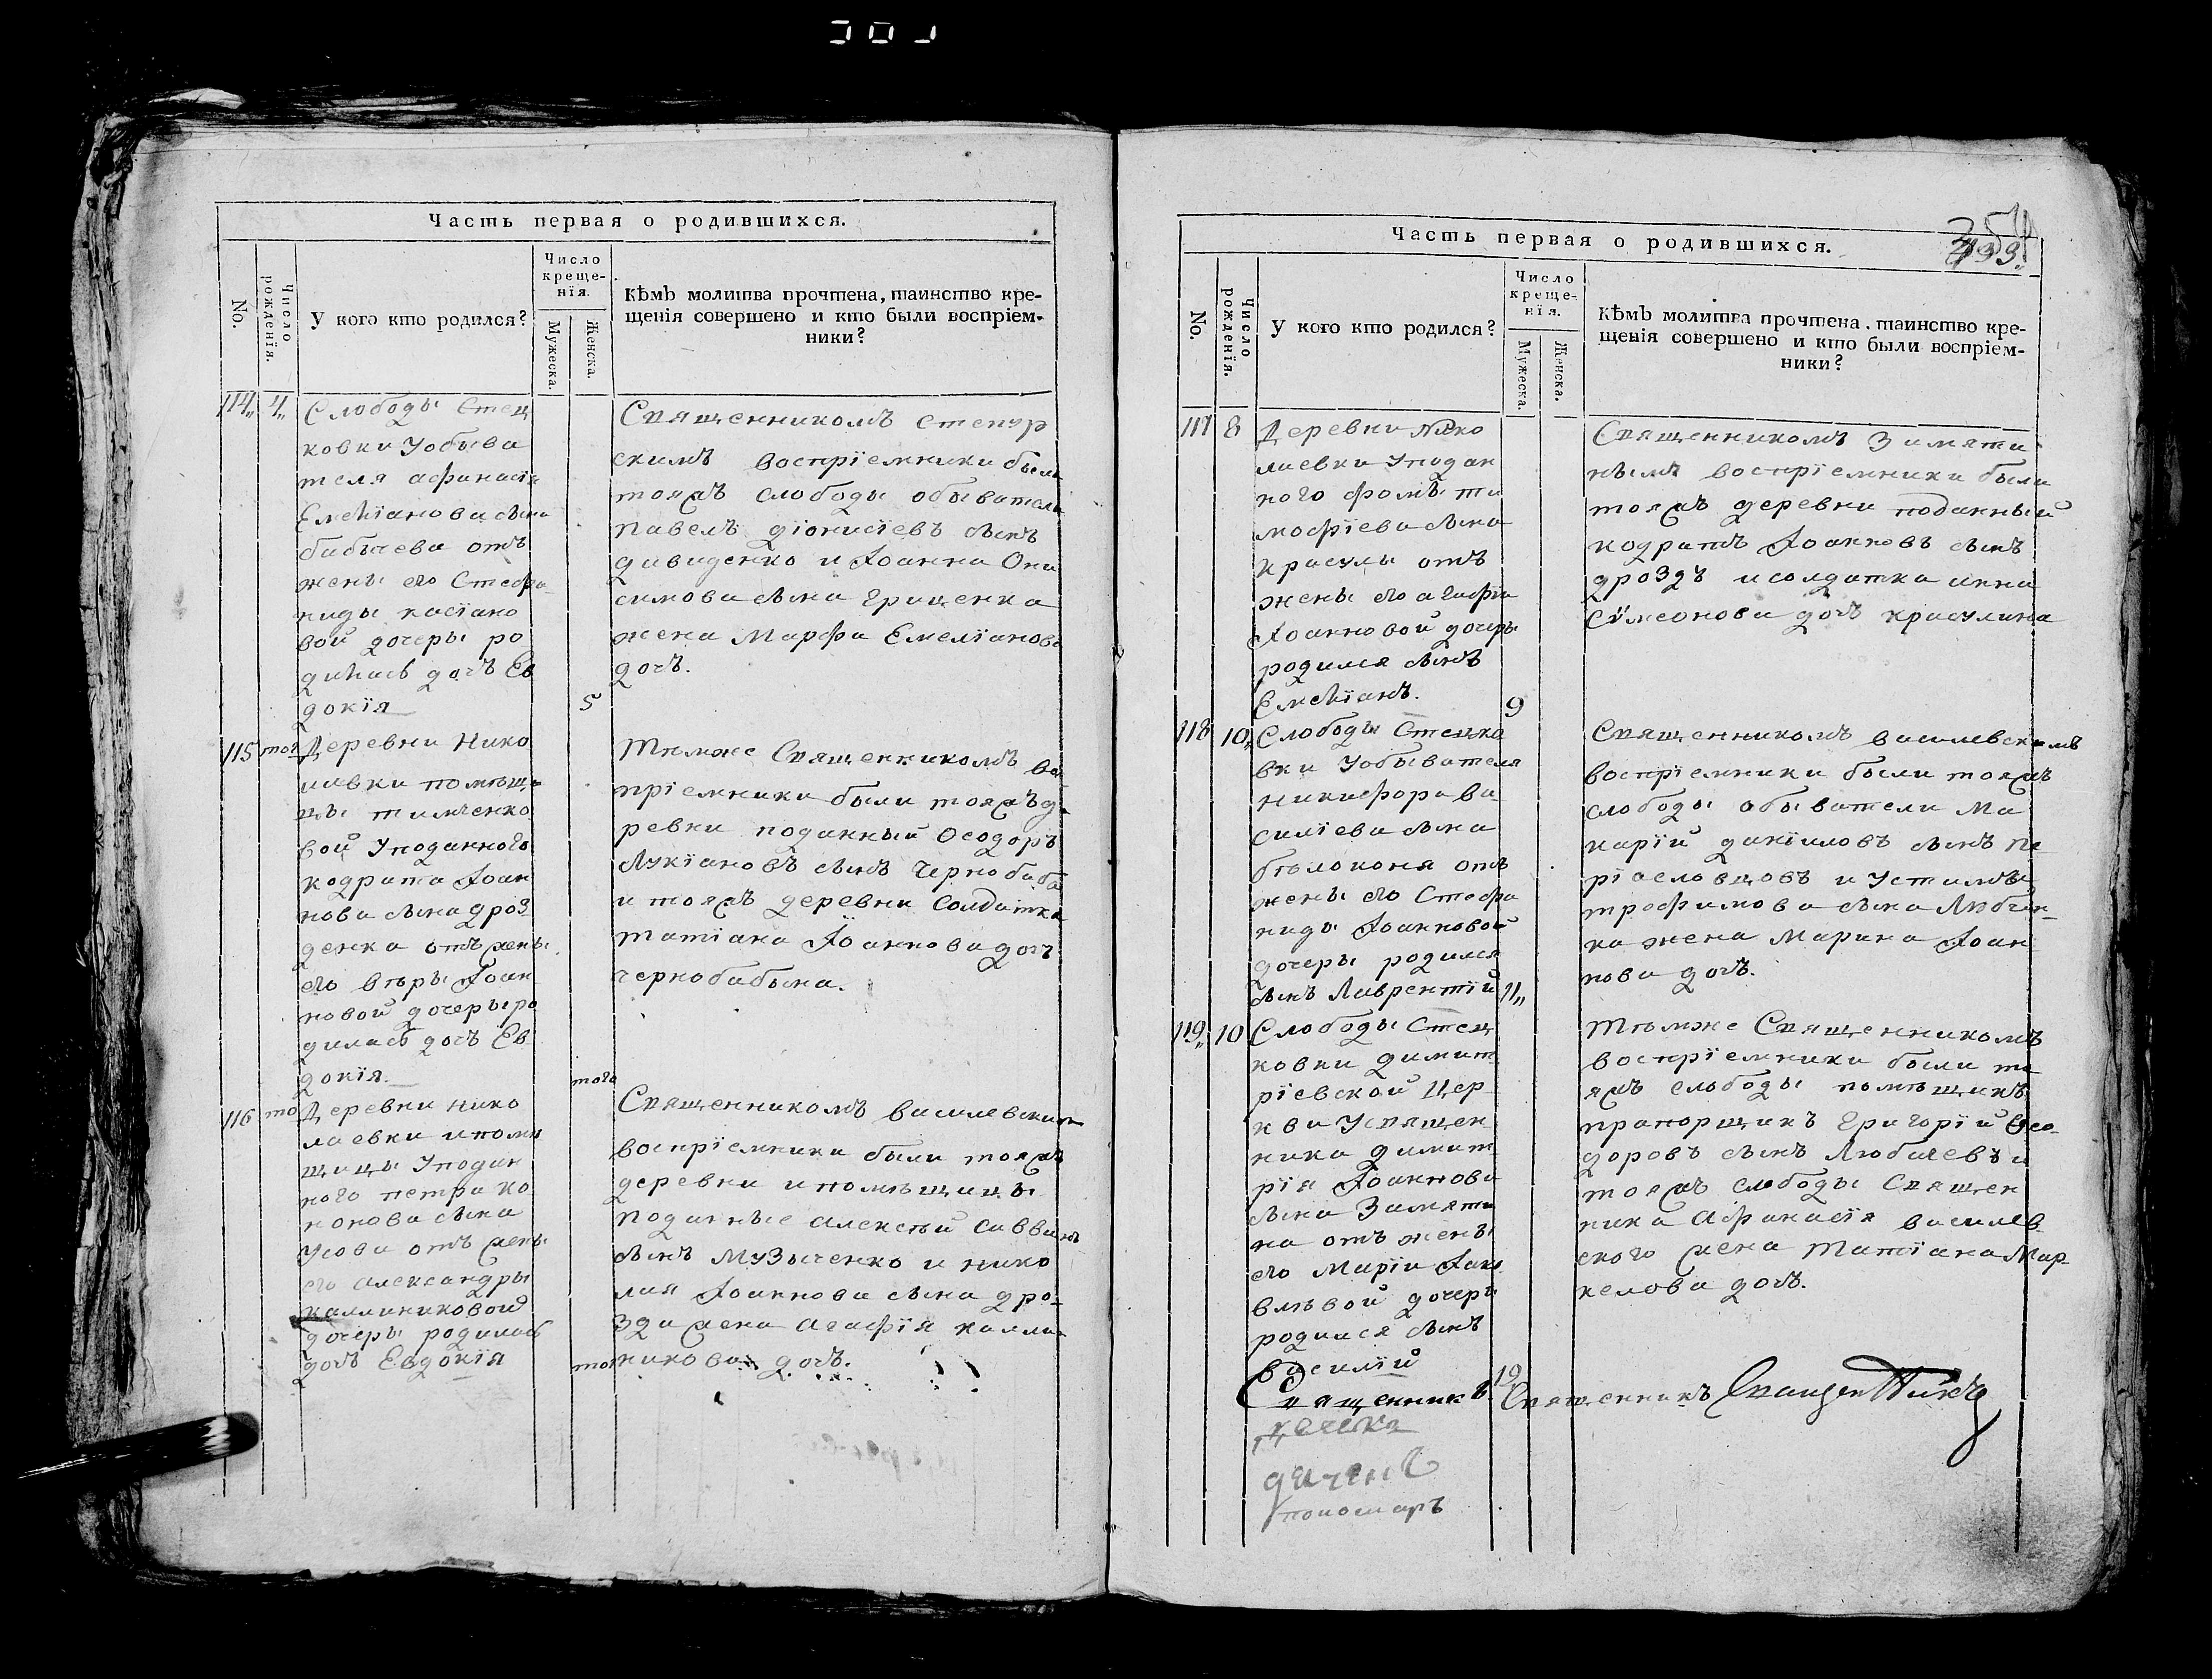 Часть первая о родившихся.
No.
Число рожденїя.
У кого кто родился?
Число
креще-
нїя.
Мужеска.
Женска.
Кѣмъ молитва прочтена, таинство кре-
щенїя совершено и кто были воспрїем-
ники?
114,, 4,,
Слободы Стец
ковки Уобыва
теля афанасїя
Емелїанова сына
бабичева отъ
жены его Стефа
ниды касїано
вой дочеры ро
дилась дочь Ев
докїя
5
Священникомъ
скимъ воспрїемники были
тояжъ слободы обыватели
павелъ дїонисїевъ сынъ
давиденко и Іоанна Они
симова сына грищенка
жена Марфа Емелїанова
дочъ.
115 того
Деревни Нико
лаевки помѣщи
цы тимченко
вой Уподанного
кодрата Іоан
нова сына дроз
денка отъ жены
его вѣры Іоан
новой дочеры ро
дилась дочъ Ев
докїя.
того
Тѣмже Священникомъ вос
прїемники были тояжъ де
ревни поданный Ѳеодоръ
Лукїановъ сынъ чернобаба
и тояжъ деревни Солдатка
татїана Іоаннова дочъ
чернобабына.
116 то
Деревни нико
лаевки ипомѣ
щицы Уподан
ного петра ко
нонова сына
Усова отъ жены
его александры
калиниковой
дочеры родилась
дочъ Евдокїя
того
Священникомъ василевскимъ
воспрїемники были тояжъ
деревни ипомѣщицы
поданные алексѣй саввинъ
сынъ Музыченко и нико
лая Іоаннова сына дро-
зда жена агафїя калли
никова дочъ.
Часть первая о родившихся.
354
No.
Число рожденїя.
У кого кто родился?
Число
креще-
нїя.
Мужеска.
Женска.
Кѣмъ молитва прочтена, таинство кре-
щенїя совершено и кто были воспрїем-
ники?
117 8
Деревни Нико
лаевки Уподан
ного фомы ти
мофїева сына
красулы отъ
жены его агафїи
Іоанновой дочеры
родился сынъ
Емелїанъ.
9
Священникомъ Замяти
нымъ воспрїемники были
тояжъ деревни поданный
кодратъ Іоанновъ сынъ
дроздъ и солдатка анна
Сѵмеонова дочъ красулина
118 10,,
Слободы Стецко
вки Уобывателя
никифора ва
силїева сына
бѣлоконя отъ
жены его Стефа
ниды Іоанновой
дочеры родился
сынъ Лаврентїй
11,,
Священникомъ василевскимъ
воспрїемники были тояжъ
слободы обыватели Ма
карїй данїиловъ сынъ пе
рїасловцовъ и Устима
трофимова сына Любчен-
ка жена Марина Іоан
нова дочъ.
119,, 10
Слободы Стец
ковки димит
рїевской Цер
кви Усвящен
ника димит
рїя Іоаннова
сына Замяти
на отъ жены
его Марїи Іако
влѣвой дочеры
родился сынъ
василїй
19
Тѣмже Священникомъ
воспрїемники были то
яжъ слободы помѣщикъ
прапорщикъ григорїй Ѳео-
доровъ сынъ Любачевъ и
тояжъ слободы Священ
ника Афанасїя василев
ского жена татїана Мар-
келова дочъ.
Священникъ Священникъ Священникъ
пономаръ